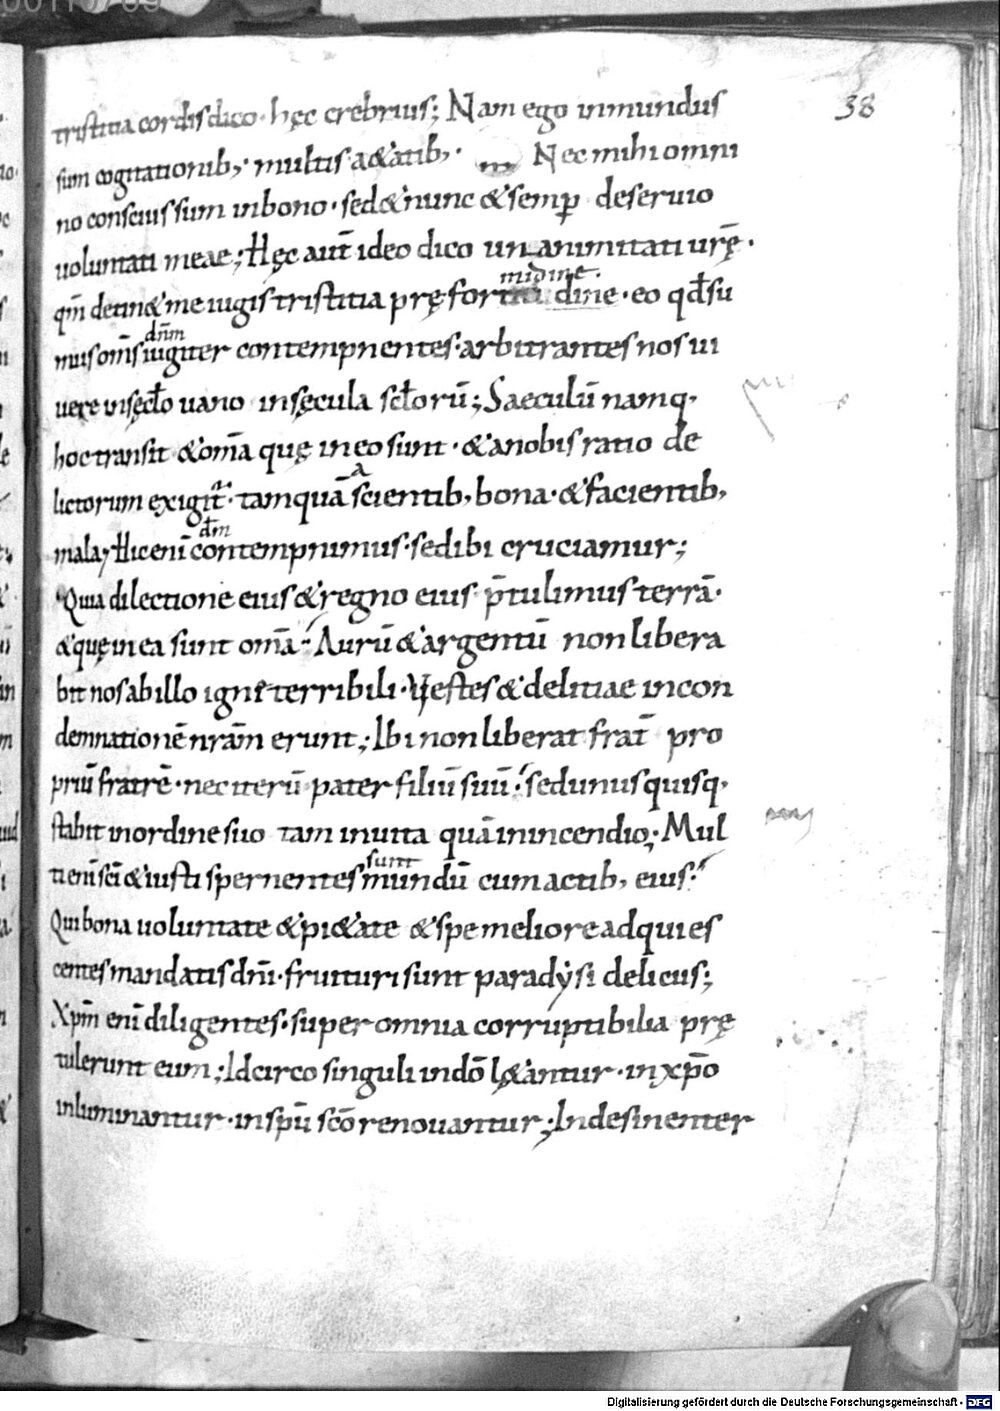 38
tristitia cordis dico· hęc crebrius; Nam ego inmundus
sum cogitationib; multis a&atib;· Nec mihi omni
no conscius sum inbono· sed &nunc &semp deseruio
uoluntati meae; Hęc aut̄ ideo dico unanimitati urę̄·
midine·
qm̄ detin& me iugis tristitia prę for dine· eo qđ su
dn̄m
mus om̄s iugiter contempnentes· arbitrantes nos ui
uere insęclo uano insęcula scłorū; Saeculū namq·
hoc transit &om̄a quę in eo sunt· &anobis ratio de
lictorum exigit̄· tamquā scientib; bona· &facientib;
a
dm̄
mala; Hic enī contempnimus· sed ibi cruciamur;
Quia dilectione eius &regno eius p̄tulimus terrā·
&quę in ea sunt om̄a· Aurū &argentū non libera
bit nos ab illo igne terribili· Vestes &delitiae in con
demnationē nrām erunt; Ibi non liberat frat̄ pro
priū fratrē· nec iterū pater filiū suū· sed unusquisq·
stabit in ordine suo tam in uita quā in incendio; Mul
sunt
ti enī sc̄i &iusti spernentes mundū cum actib; eius·
Qui bona uoluntate &pi&ate &spe meliore adquies
centes mandatis dn̄i· fruituri sunt paradẏsi deliciis;
Xpm̄ enī diligentes· super omnia corruptibilia prę
tulerunt eum; Idcirco singuli in dō lę&antur· in xp̄o
inluminantur· in spū scō renouantur; Indesinenter
Digitalisierung gefördert durch die Deutsche Forschungsgemeinschaft - DFG